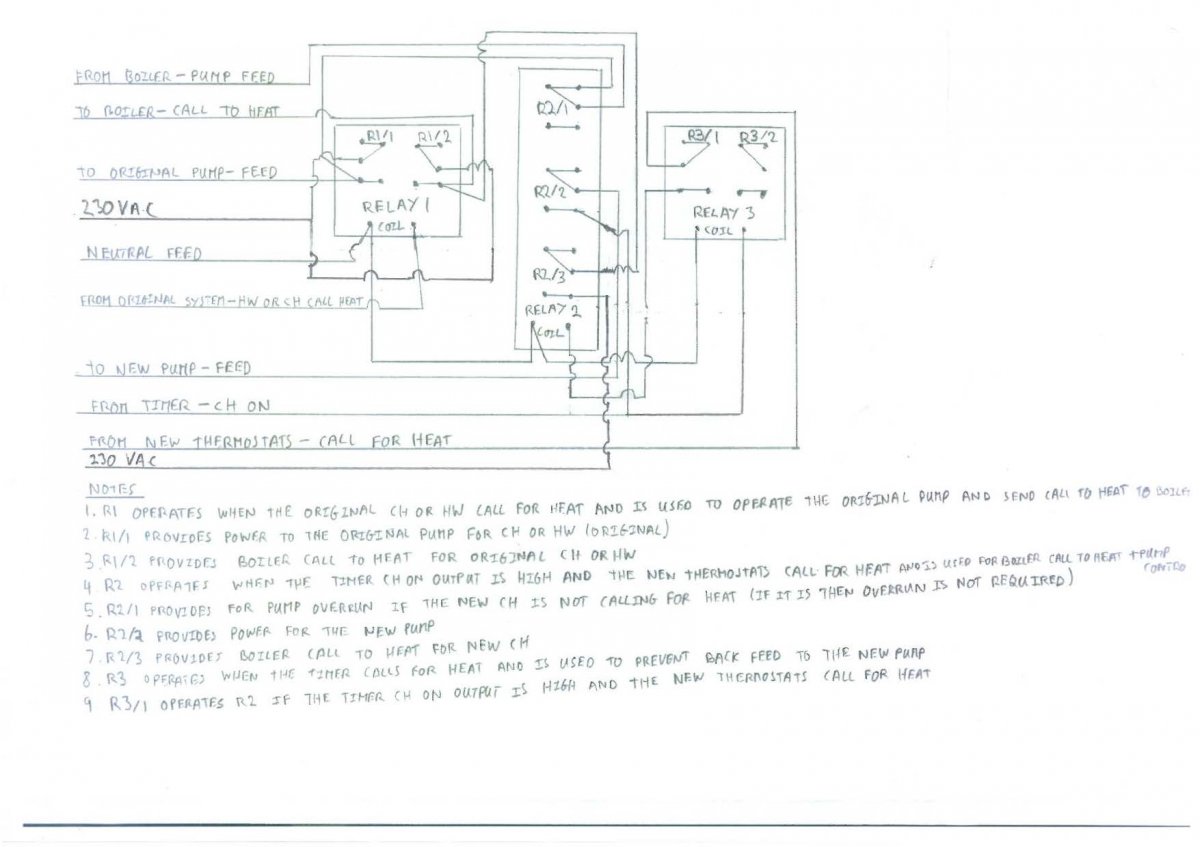 FROM BOILER - PUMP FEED
TO BOILER - CALL TO HEAT
R2/1
R1/1 R1/2
R3/1 R3/2
TO ORIGINAL PUMP - FEED
R2/2
230 VAC
RELAY 1
COIL
RELAY 3
COIL
NEUTRAL FEED
R2/3
FROM ORIGINAL SYSTEM - HW OR CH CALL HEAT
RELAY 2
COIL
TO NEW PUMP - FEED
FROM TIMER - CH ON
FROM NEW THERMOSTATS - CALL FOR HEAT
230 VAC
NOTES
1. R1 OPERATES WHEN THE ORIGINAL CH OR HW CALL FOR HEAT AND IS USED TO OPERATE THE ORIGINAL PUMP AND SEND CALL TO HEAT TO BOILE
2. R1/1 PROVIDES POWER TO THE ORIGINAL PUMP FOR CH OR HW (ORIGINAL)
3. R1/2 PROVIDES BOILER CALL TO HEAT FOR ORIGINAL CH OR HW
4 R2 OPERATES WHEN THE TIMER CH ON OUTPUT IS HIGH AND THE NEW THERMOSTATS CALL FOR HEAT AND IS USED FOR BOILER CALL TO HEAT + PUMP CONTRO
5. R2/1 PROVIDES FOR PUMP OVERRUN IF THE NEW CH IS NOT CALLING FOR HEAT (IF IT IS THEN OVERRUN IS NOT REQUIRED)
6. R2/2 PROVIDES POWER FOR THE NEW PUMP
7. R2/3 PROVIDES BOILER CALL TO HEAT FOR NEW CH
8. R3 OPERATES WHEN THE TIMER CALLS FOR HEAT AND IS USED TO PREVENT BACK FEED TO THE NEW PUMP
9 R3/1 OPERATES R2 IF THE TIMER CH ON OUTPUT IS HIGH AND THE NEW THERMOSTATS CALL FOR HEAT